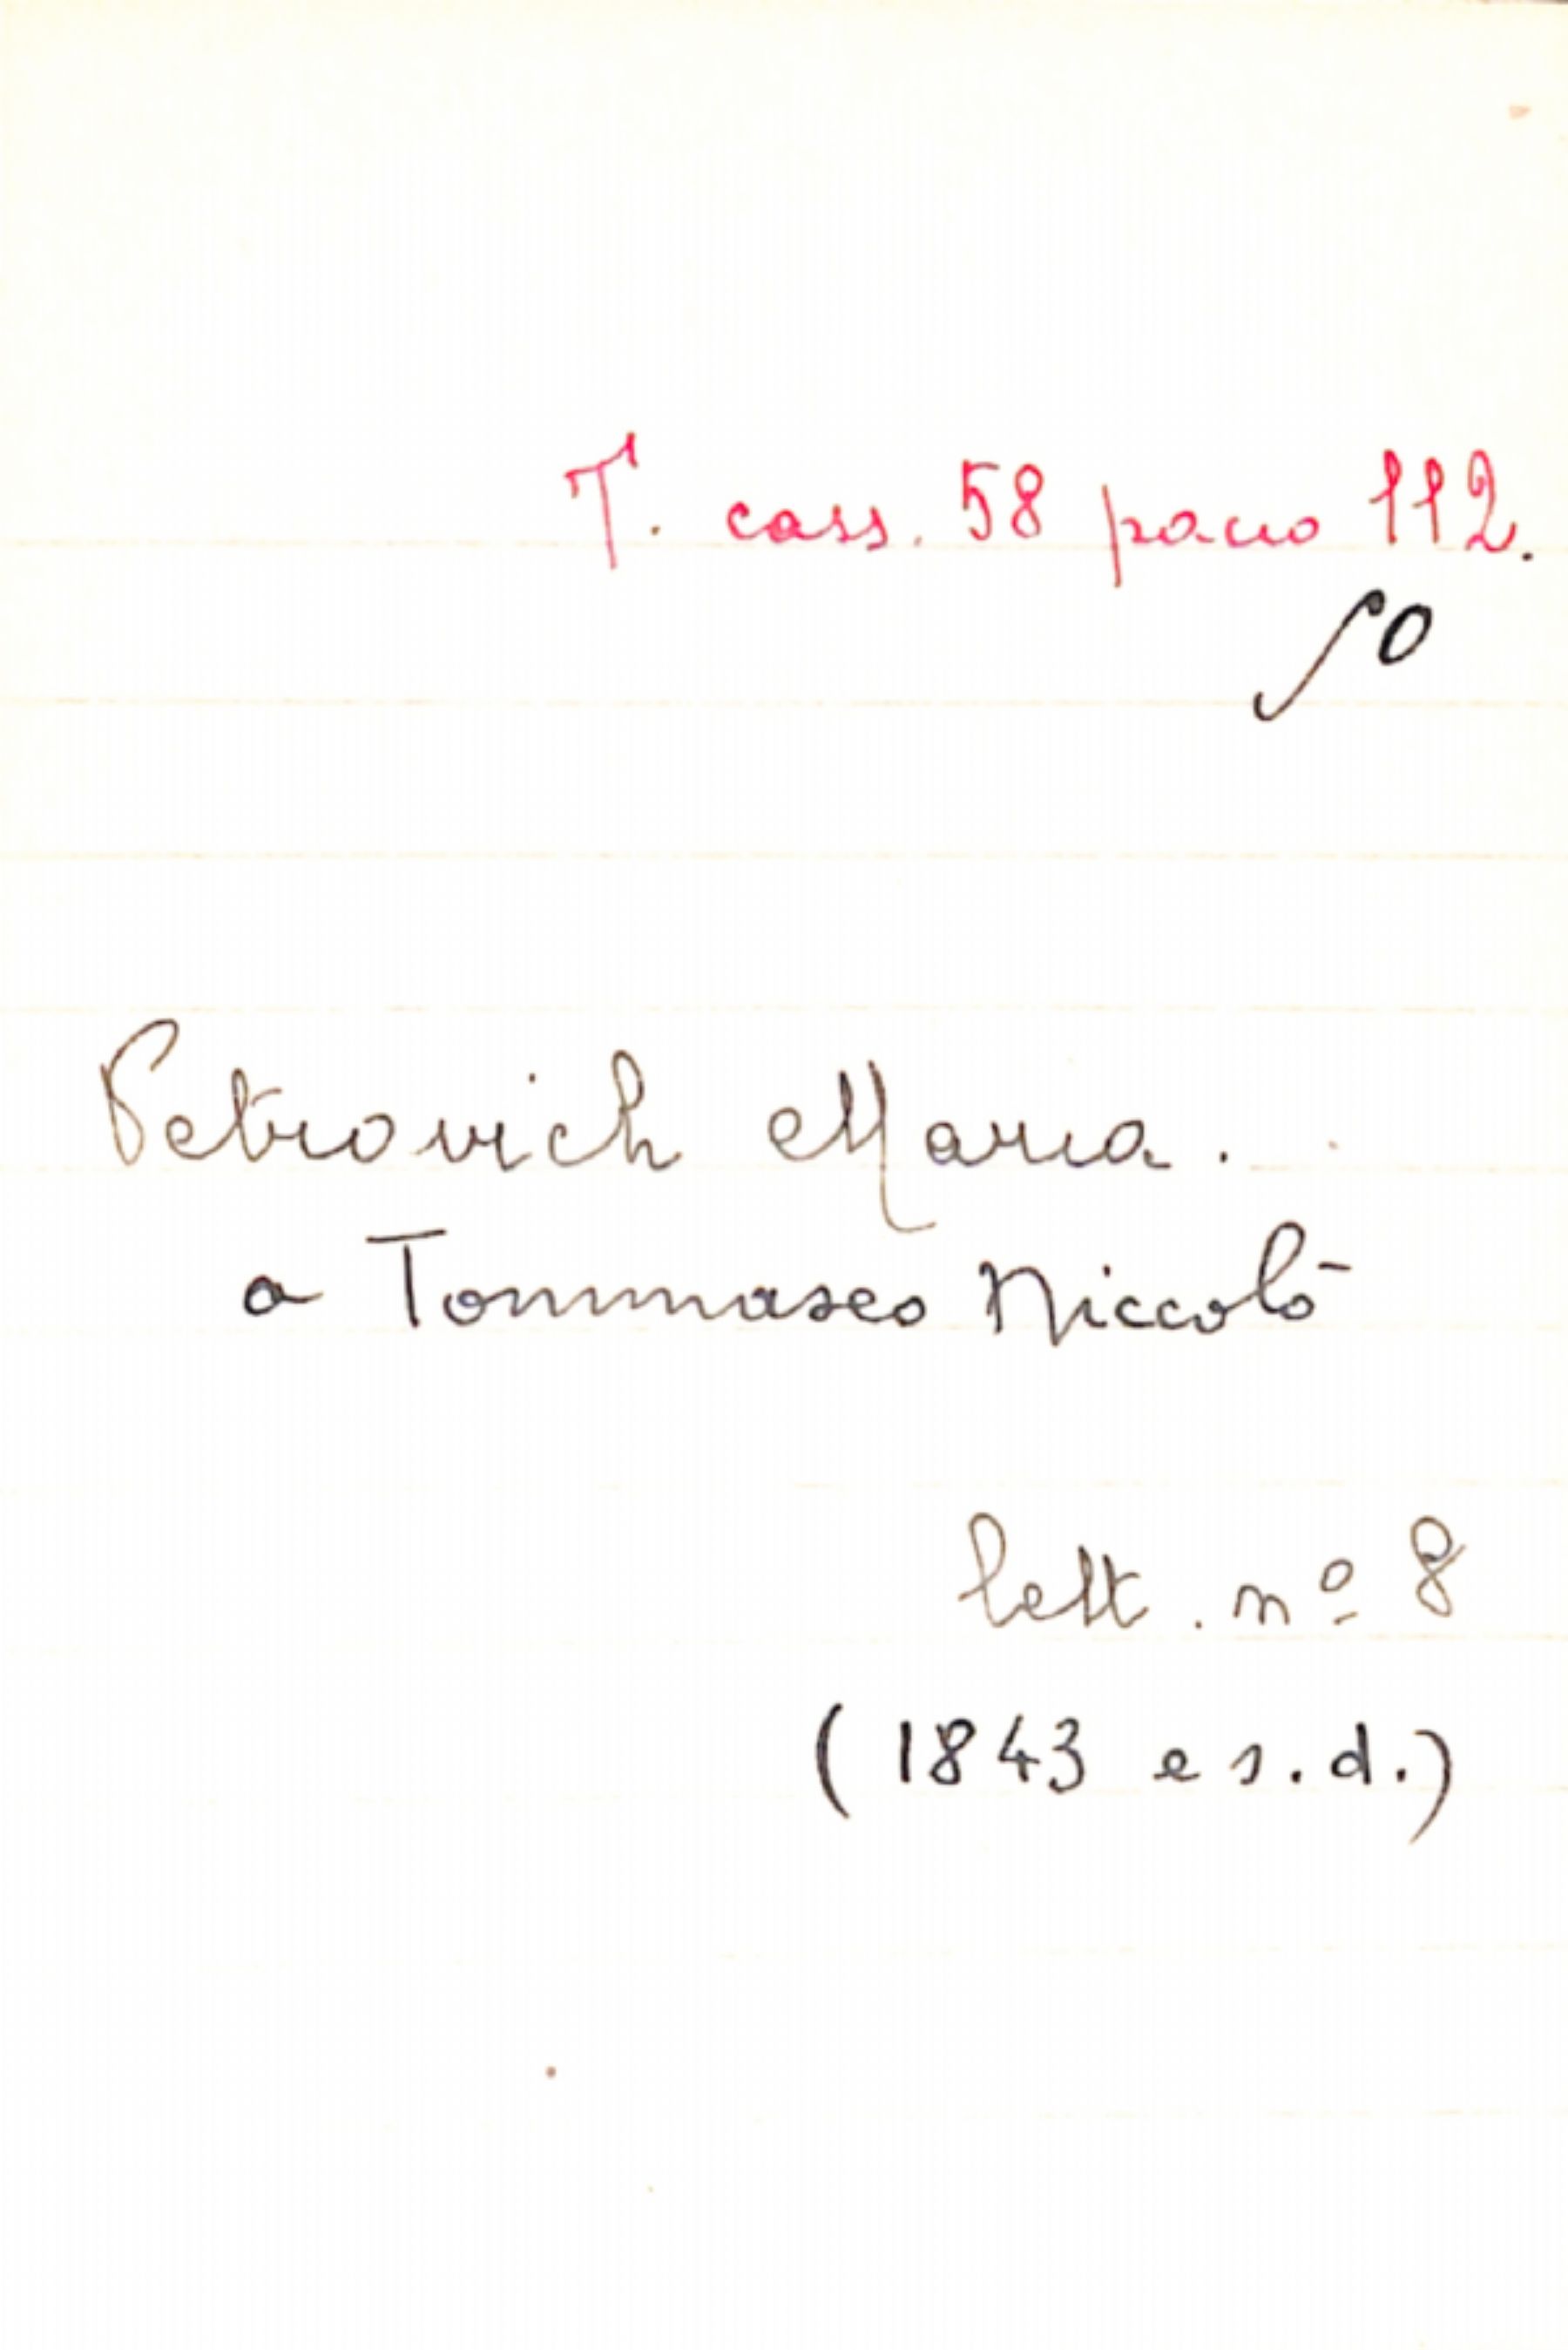 T. cass. 58 pacco 112.
Petrovich Maria.
a Tommaseo Niccolò
lett. nº 8
(1843 e s.d.)